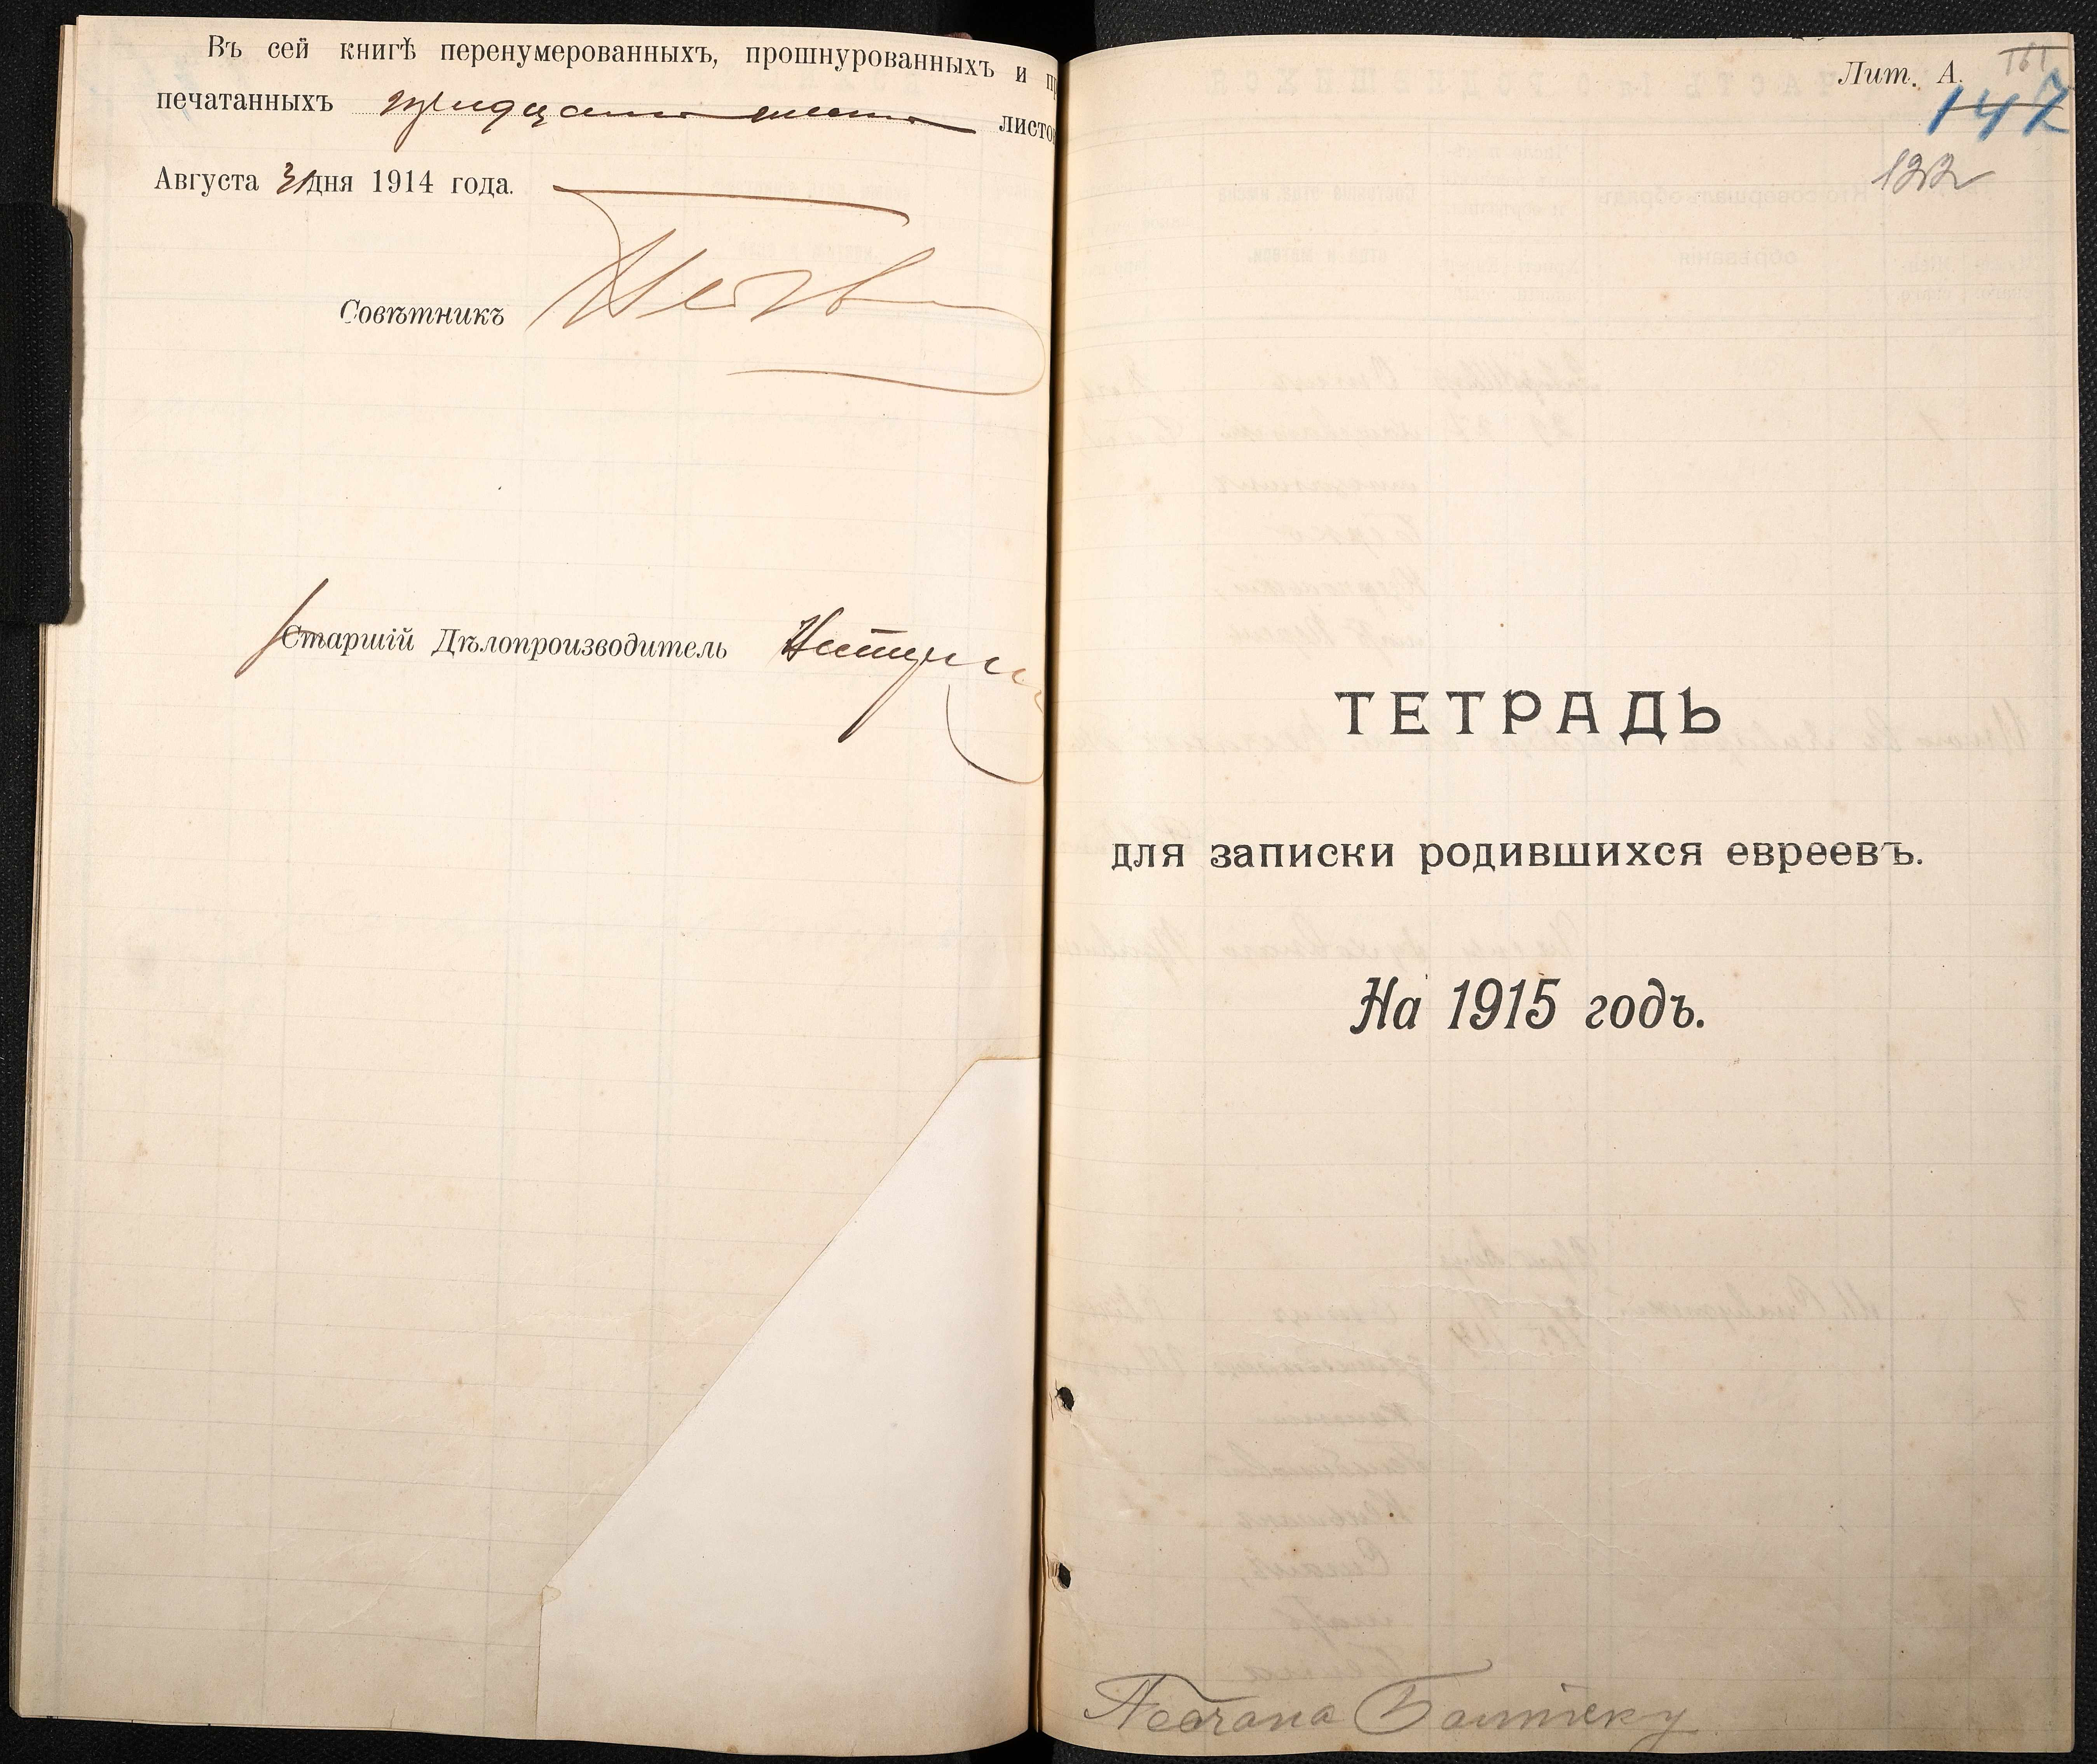 Въ сей книгѣ перенумерованныхъ, прошнурованныхъ и
печатанныхъ тридцать шесть
Августа 31 дня 1914 года.
Совѣтникъ
Старшій Дѣлопроизводитель
Лит. А.
147
122
ТЕТРАДЬ
для записки родившихся евреевъ.
На 1915 годъ.